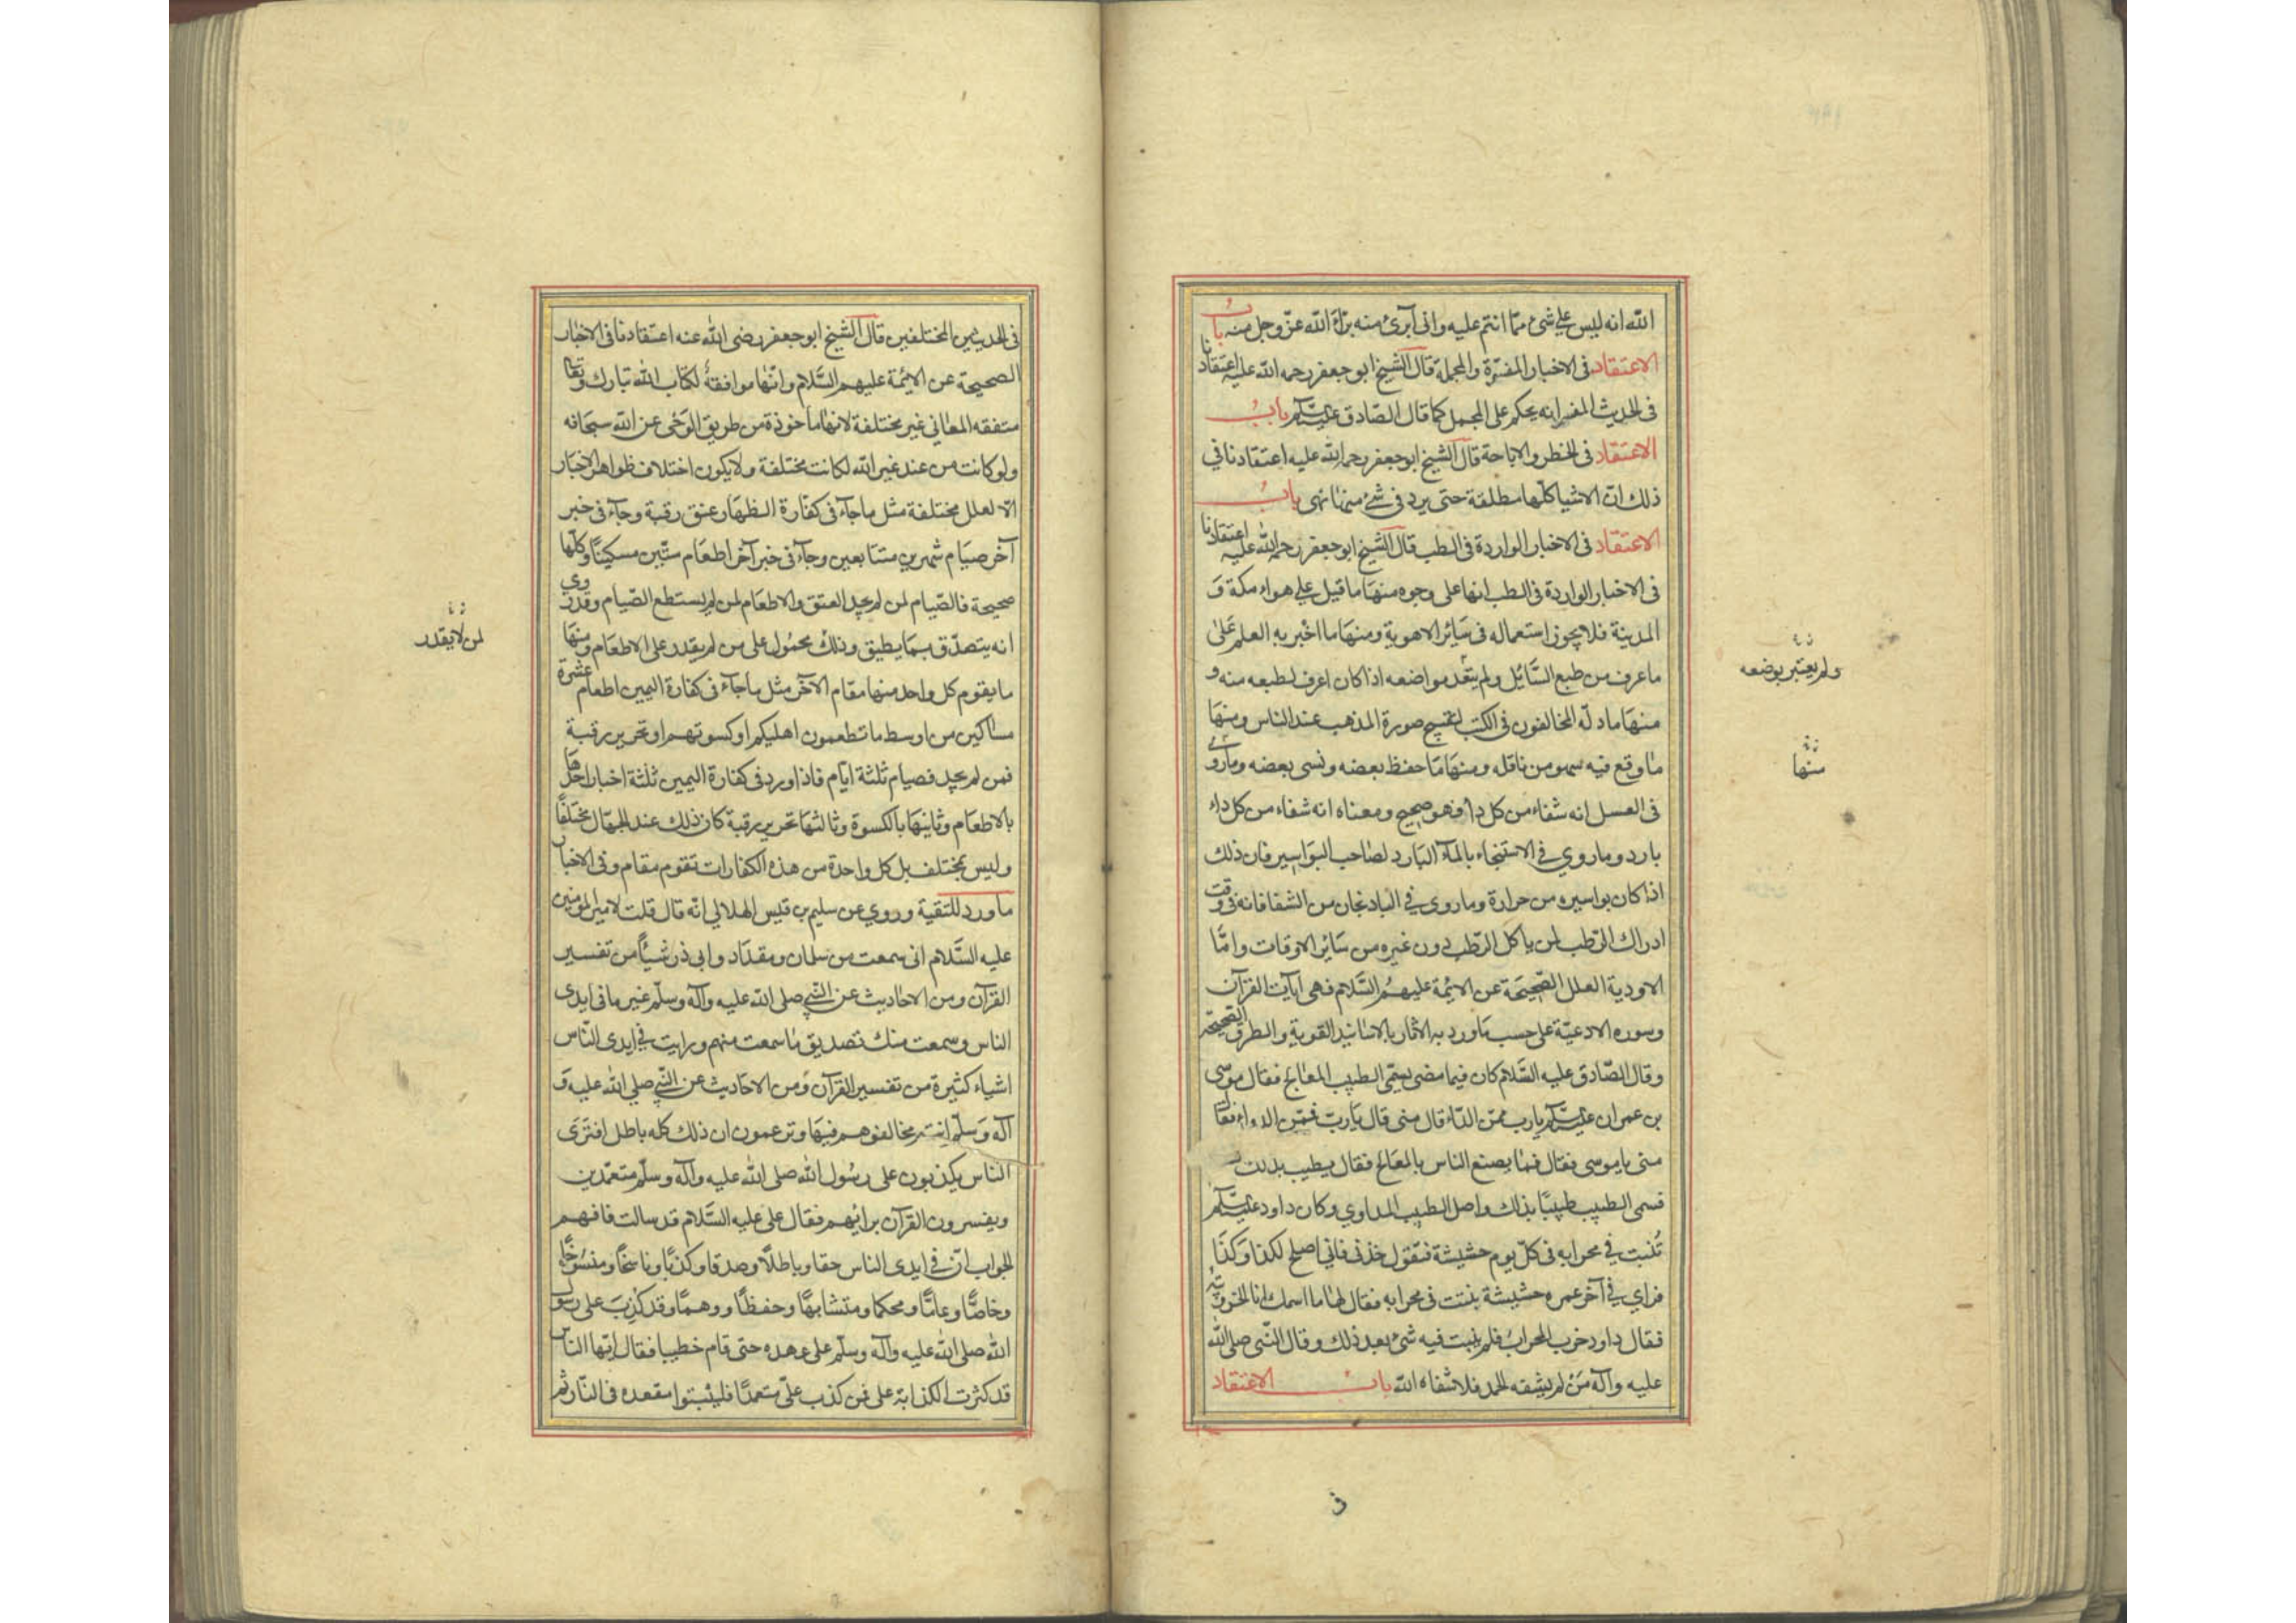 الله انه ليس علي شئ مما انتم عليه واني ابرئ منه برأ الله عز وجل منه باب
الاعتقاد في الاخبار المفسرة والمجملة قال الشيخ ابو جعفر رحمه الله عليه اعتقادنا
في الحديث المفسر انه يحكم على المجمل كما قال الصادق عليه السلم باب
الاعتقاد في الخطر والاباحة قال الشيخ ابو جعفر رحمه الله عليه اعتقادنا في
ذلك ان الاشيا كلها مطلقة حتى يرد في شئ منها نهى باب
الاعتقاد في الاخبار الواردة في الطب قال الشيخ ابو جعفر رحمه الله عليه اعتقادنا
في الاخبار الواردة في الطب انها على وجوه منها ما قيل علي هواء مكة و
المدينة فلا يجوز استعماله في سائر الاهوية ومنها ما اخبر به العلم على
ما عرف من طبع السائل ولم يتعد مواضعه اذا كان اعرف لطبعه منه و
منها ما دله المخالفون في الكتب لتقبيح صورة المذهب عند الناس ومنها
ما وقع فيه سهو من ناقله ومنها ما حفظ بعضه ونسى بعضه وما روي
في العسل انه شفاء من كل داء فهو صحيح ومعناه انه شفاء من كل داء
بارد وما روي في الاستنجاء بالماء البارد لصاحب البواسير فان ذلك
اذا كان بواسيره من حرارة وما روى في الباد نجان من الشفا فانه في وقت
ادراك الرطب لمن ياكل الرطب دون غيره من سائر الاوقات واما
الاودية العلل الصحيحة عن الائمة عليهم السلام فهى آيات القرآن
وسوره الادعية على حسب ما ورد به الاثار بالاسانيد القوية والطرق الصحيحة
وقال الصادق عليه السلام كان فيما مضى يسمى الطبيب المعالج فقال موسى
بن عمران عليه السلم يارب ممن الداء قال منى قال يا رب فممن الدواء فقا
منى يا موسى فقال فما يصنع الناس بالمعالج فقال يطيب بذلك
فسمى الطبيب طبيبا بذلك واصل الطبيب المداوي وكان داود عليه السلم
تنبت في محرابه في كل يوم حشيشة فتقول خذني فاني اصلح لكذا وكذا
فراي في آخر عمره حشيشة بنتت في محرابه فقال لها ما اسمك انا الخروبيه
فقال داود خرب المحراب فلم ينبت فيه شئ بعد ذلك وقال النبي صلى الله
عليه وآله من لم يشفه الحمد فلا شفاه الله باب الاعتقاد
ولم يعتبر بوضعه
منها
في الحديثين المختلفين قال الشيخ ابو جعفر رضى الله عنه اعتقادنا في الاخبار
الصحيحة عن الائمة عليهم السلام وانها موافقة لكتاب الله تبارك وتعا
متفقه المعاني غير مختلفة لانها مأخوذة من طريق الوحى عن الله سبحانه
ولو كانت من عند غير الله لكانت مختلفة ولا يكون اختلاف ظواهر الاخبار
الا لعلل مختلفة مثل ما جآء في كفارة الظهار عتق رقبة وجآء في خبر
آخر صيام شهرين متتابعين وجآء في خبر آخر اطعام ستين مسكينا وكلها
صحيحة فالصيام لمن لم يجد العتق والاطعام لمن لم يستطع الصيام وقد روي
انه يتصدق بما يطيق وذلك محمول على من لم يقدر على الاطعام ومنها
ما يقوم كل واحد منها مقام الآخر مثل ما جآء في كفارة اليمين اطعام عشرة
مساكين من اوسط ما تطعمون اهليكم او كسوتهم او تحرير رقبة
فمن لم يجد فصيام ثلثة ايام فاذا ورد في كفارة اليمين ثلثة اخبار احدها
بالاطعام وثانيها بالكسوة وثالثها تحرير رقبة كان ذلك عند الجهال مختلفا
وليس بمختلف بل كل واحدة من هذه الكفارات تقوم مقام وفي الاخبار
ما ورد للتقية وروي عن سليم بن قيس الهلالي انه قال قلت لامير المؤمنين
عليه السلام انى سمعت من سلمان ومقداد وابي ذر شيئا من تفسير
القرآن ومن الاحاديث عن النبي صلى الله عليه وآله وسلم غير ما في ايدى
الناس وسمعت منك تصديق ما سمعت منهم ورايت في ايدى الناس
اشياء كثيرة من تفسير القرآن ومن الاحاديث عن النبي صلي الله عليه و
آله وسلم انتم مخالفوهم فيها وتزعمون ان ذلك كله باطل افترى
الناس يكذبون على رسول الله صلى الله عليه وآله وسلم متعمدين
ويفسرون القرآن برائهم فقال على عليه السلام قد سالت فافهم
الجواب ان في ايدى الناس حقا وباطلا وصدقا وكذبا وناسخا ومنسوخا
وخاصا وعاما ومحكما ومتشابها وحفظا ووهما وقد كذب على رسول
الله صلى الله عليه وآله وسلم على عهده حتى قام خطيبا فقال ايها الناس
قد كثرت الكذابة على فمن كذب على متعمدا فليتبوا مقعده في النار ثم
لمن لا يقدر